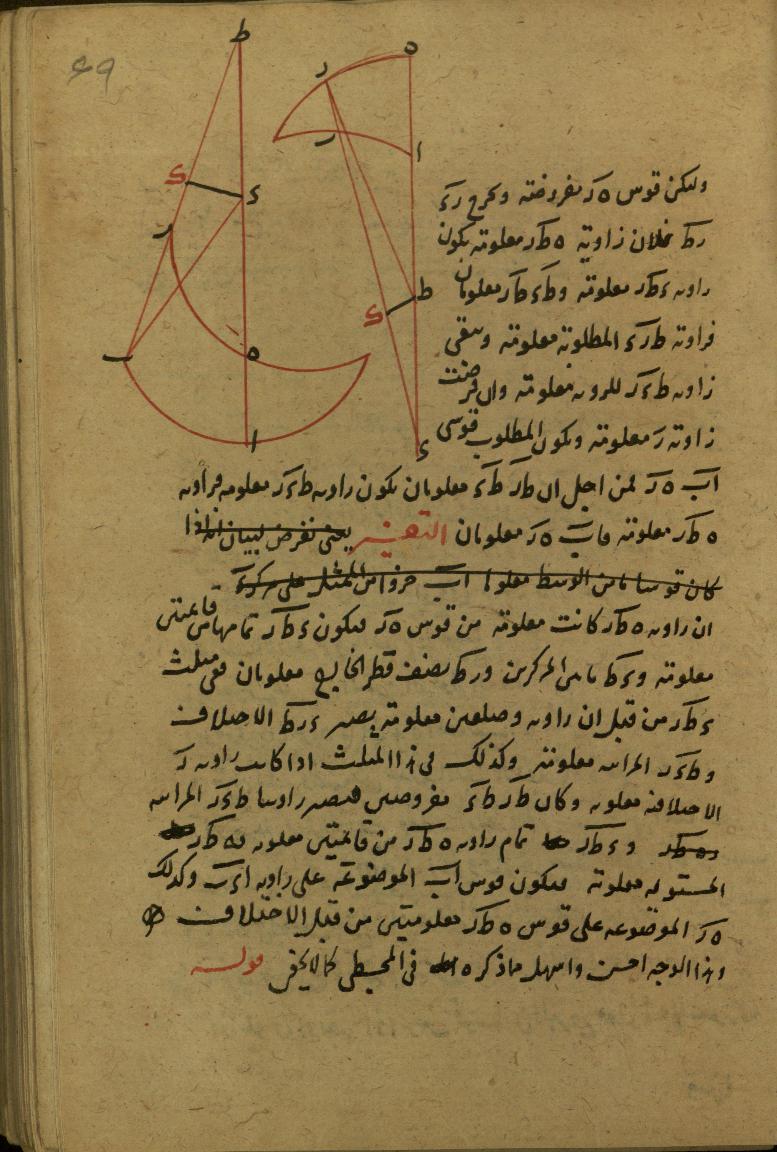 ٤٩
ط
ه
ر
ا
ر
ء
ع
ط
ر
ع
ه
ب
ا
ء
ولیکن قوس ه ر مفروضة ونخرج رء
رط فلان زاویة ه ط ر معلومة یکون
زاویة ء ط ر معلومة وطء طر معلومان
فزاویة ط ر ء المطلوبة معلومة وتبقی
زاویة ط ء ر للرویة معلومة وان فرضت
زاویة ر معلومة ویکون المطلوب قوسی
اب ه ر فمن اجل ان طر طء معلومان یکون زاویة ط ء ر معلومة فزاویة
ه ط ر معلومة فاب ه ر معلومان التفسیر یعنی نفرض لبیان اذا
کان قوسا ما من الوسط معلوما اب جزوا من الممثل علی مرکز ء
ان زاویة ه ط ر کانت معلومة من قوس ه ر فیکون ء ط ر تمامها من قائمتین
معلومة وء ط ما بین المرکزین و ر ط نصف قطر الخارج معلومان ففی مثلث
ء ط ر من قبل ان زاویة وضلعین معلومة یصیر ء ر ط الاختلاف
و ط ء ر المرایة معلومتین وکذلک فی هذا المثلث اذا کانت زاویة ر
الاختلافیة معلومة وکان طر طء مفروضین فیصیر زاویتا ط ء ر المرایة
و ء ط ر تمام زاویة ه ط ر من قائمتین معلومة فه ط ر
المستویة معلومة فیکون قوس اب الموضوعة علی زاویة ا ء ب وکذلک
ه ر الموضوعة علی قوس ه ط ر معلومتین من قبل الاختلاف
وهذا الوجه احسن واسهل ما ذکره فی المجسطی کما لا یخفی قوله